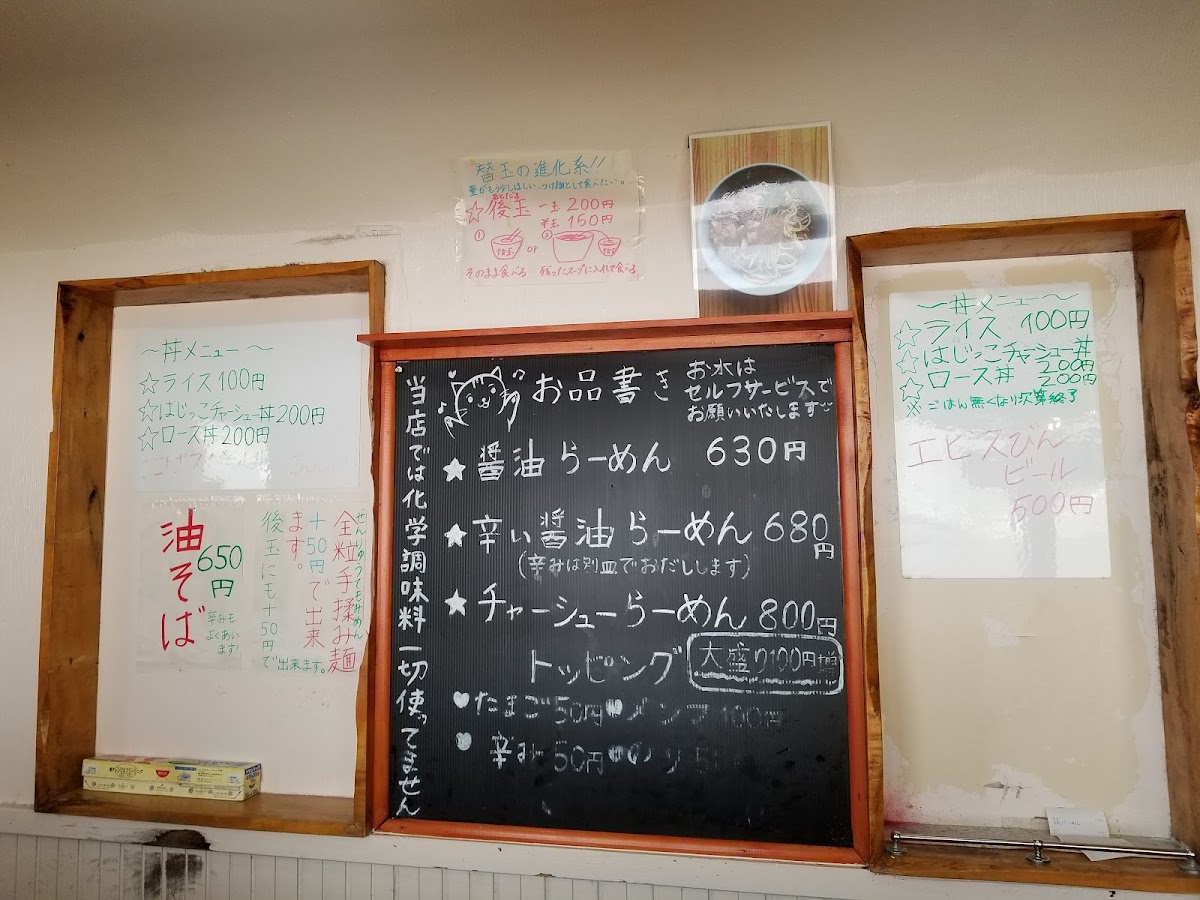 替玉の進化系!!
量がもう少しほしい、つけ麺として食べたい…。
☆後玉 一玉 200円
あとだま
半玉 150円
① or ②
後玉
後玉
そのまま食べる 残ったスープに入れて食べる
〜丼メニュー〜
☆ライス 100円
☆はじっこチャーシュー丼 200円
☆ロース丼 200円
油そば
650円
辛みも
よくあい
ます!
せんりゅうてもみめん
全粒手揉み麺
+50円で出来
ます。
後玉にも+50円
で出来ます。
当店では化学調味料一切使ってません
お品書き
お水は
セルフサービスで
お願いいたします
★醤油らーめん 630円
★辛い醤油らーめん 680円
(辛みは別皿でおだしします)
★チャーシューらーめん 800円
トッピング
大盛り100円増
♥たまご50円 ♥メンマ100円
♥辛み50円 ♥のり
〜丼メニュー〜
☆ライス 100円
☆はじっこチャーシュー丼 200円
☆ロース丼 200円
※ごはん無くなり次第終了
エビスびん
ビール
500円